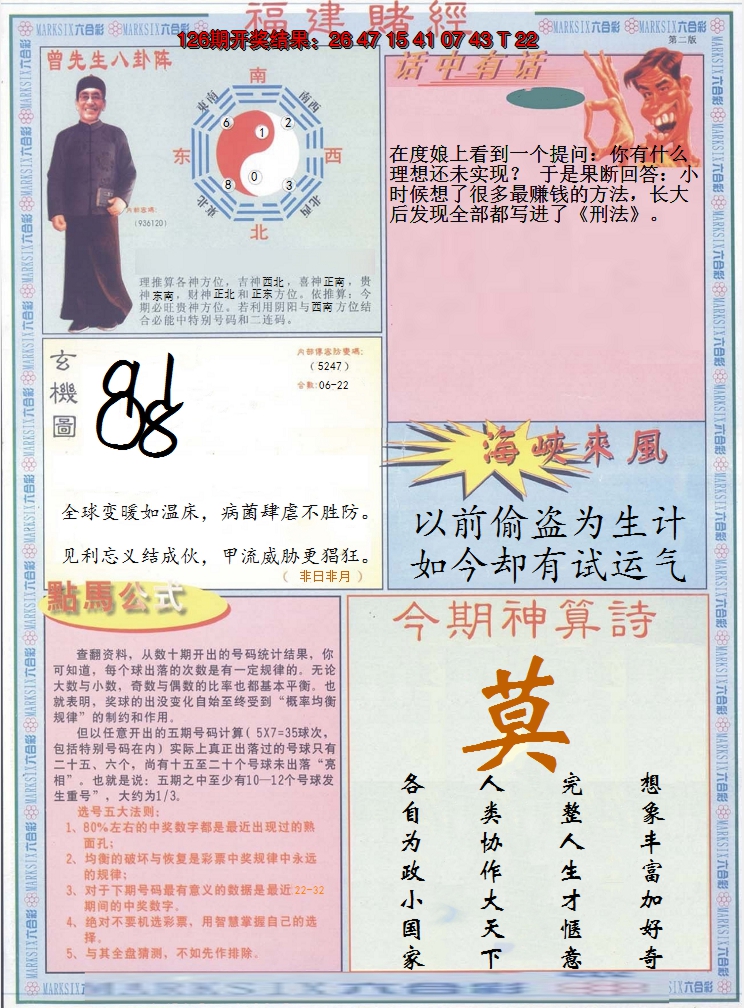 福建賭經
126期开奖结果：26 47 15 41 07 43 T 22
MARKSIX六合彩
第二版
曾先生八卦阵
南
東南
南西
6
1
2
东
西
8
0
3
東北
北西
北
內部密碼:
(936120)
理推算各神方位，吉神西北，喜神正南，贵
神东南，财神正北和正东方位。依推算：今
期必旺贵神方位。若利用阴阳与西南方位结
合必能中特别号码和二连码。
话中有话
在度娘上看到一个提问：你有什么
理想还未实现？ 于是果断回答：小
时候想了很多最赚钱的方法，长大
后发现全部都写进了《刑法》。
玄機圖
內部傳密防變碼:
(5247)
合數:06-22
全球变暖如温床，病菌肆虐不胜防。
见利忘义结成伙，甲流威胁更猖狂。
（ 非日非月 ）
海峽來風
以前偷盗为生计
如今却有试运气
點馬公式
查翻资料，从数十期开出的号码统计结果，你
可知道，每个球出落的次数是有一定规律的。无论
大数与小数，奇数与偶数的比率也都基本平衡。也
就表明，奖球的出没变化自始至终受到“概率均衡
规律”的制约和作用。
但以任意开出的五期号码计算( 5X7=35球次，
包括特别号码在内) 实际上真正出落过的号球只有
二十五、六个，尚有十五至二十个号球未出落“亮
相”。也就是说：五期之中至少有10—12个号球发
生重号”，大约为1/3。
选号五大法则：
1、80%左右的中奖数字都是最近出现过的熟
面孔；
2、均衡的破坏与恢复是彩票中奖规律中永远
的规律；
3、对于下期号码最有意义的数据是最近22-32
期间的中奖数字。
4、绝对不要机选彩票，用智慧掌握自己的选
择。
5、与其全盘猜测，不如先作排除。
今期神算詩
莫
想象丰富加好奇
完整人生才惬意
人类协作大天下
各自为政小国家